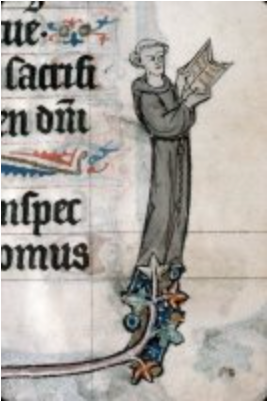 ue
sacrifi
en dm̄
nspec
omus